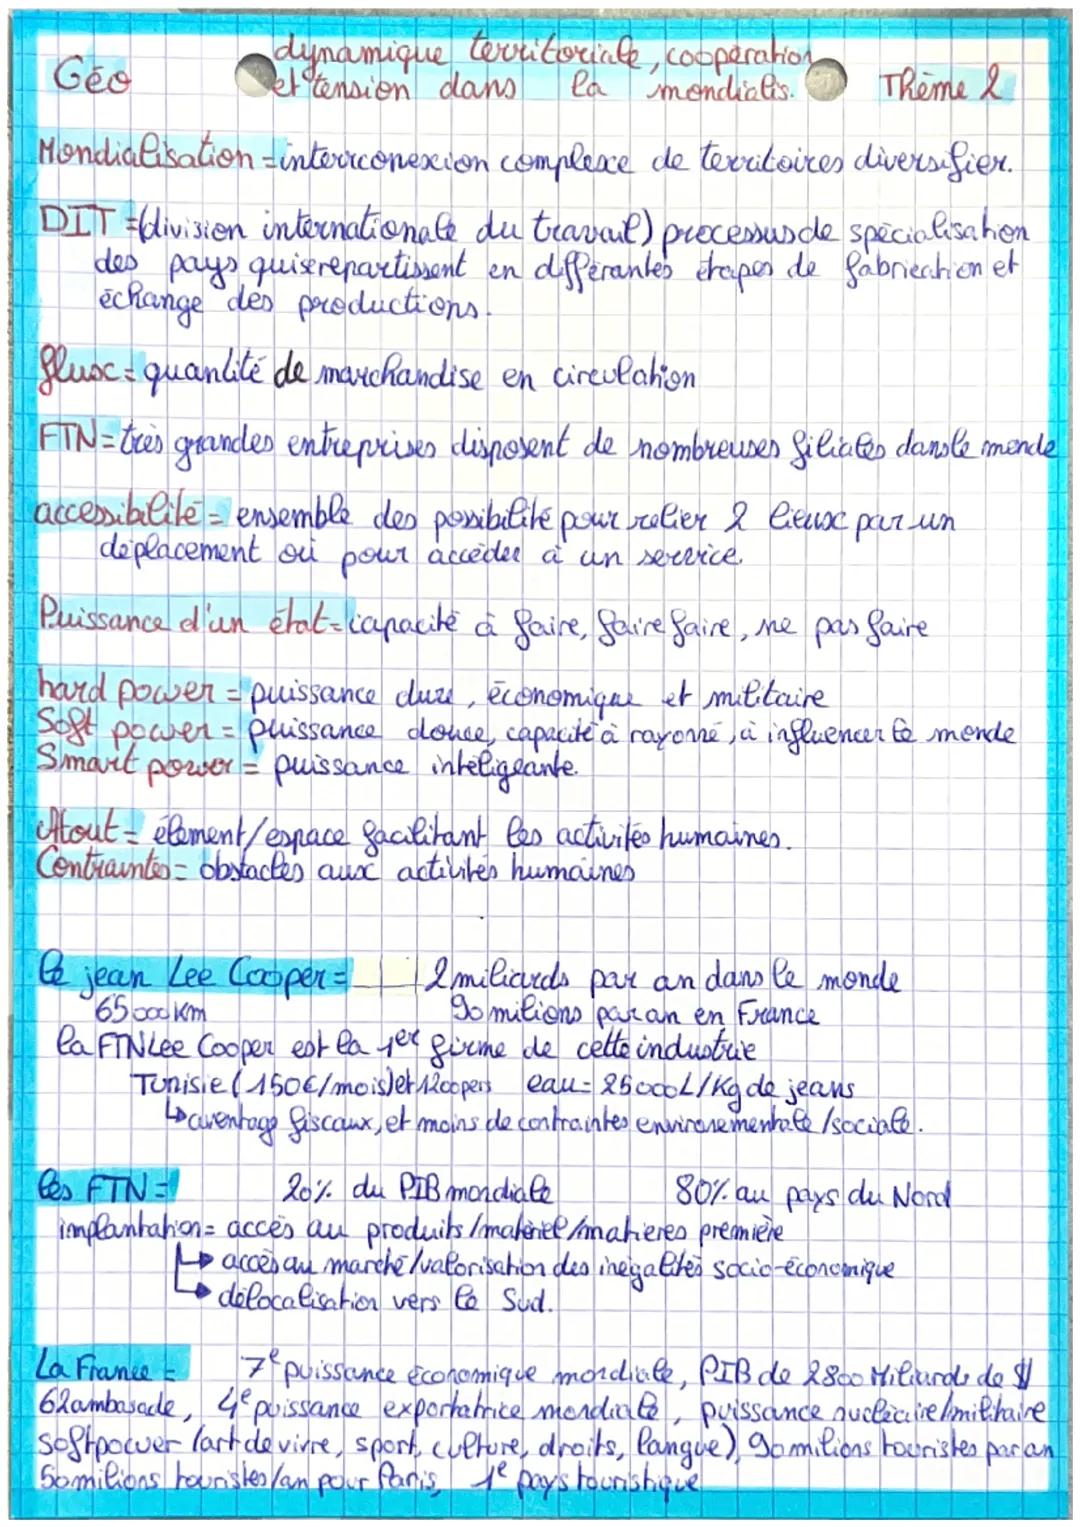 Géo
dynamique territoriale, coopération
et tension dans la mondialis.
Thème 2
Mondialisation = interrconexion complexe de territoires diversifier.
DIT = (division internationale du travail) processus de spécialisation
des pays qui se repartissent en différantes étapes de fabrication et
échange des productions.
flux = quantité de marchandise en circulation
FTN = très grandes entreprises disposent de nombreuses filiales dans le monde
accessibilité = ensemble des possibilité pour relier 2 lieux par un
déplacement où pour accéder à un service.
Puissance d'un état = capacité à faire, faire faire, ne pas faire
hard power = puissance dure, économique et militaire
Soft power = puissance douce, capacité à rayonné, à influencer le monde
Smart power = puissance inteligeante.
Atout = élement/espace facilitant les activités humaines.
Contraintes = obstacles aux activités humaines
le jean Lee Cooper = 2 miliards par an dans le monde
65 000 km 90 milions par an en France
la FTN Lee Cooper est la 1er firme de cette industrie
Tunisie (150€/mois) et 1200pers eau = 25000L/Kg de jeans
↳ aventage fiscaux, et moins de contraintes environementale/sociale.
les FTN = 20% du PIB mondiale 80% au pays du Nord
implantation = accès au produits/matériel/matieres première
↳ accès au marché/valorisation des inégalités socio-économique
↳ délocalisation vers le Sud.
La France = 7e puissance économique mondiale, PIB de 2800 Miliards de $
62 ambasade, 4e puissance exportatrice mondiale, puissance nucléaire/militaire
softpower (art de vivre, sport, culture, droits, langue), 90 milions touristes par an
50 milions touristes/an pour Paris, 1e pays touristique